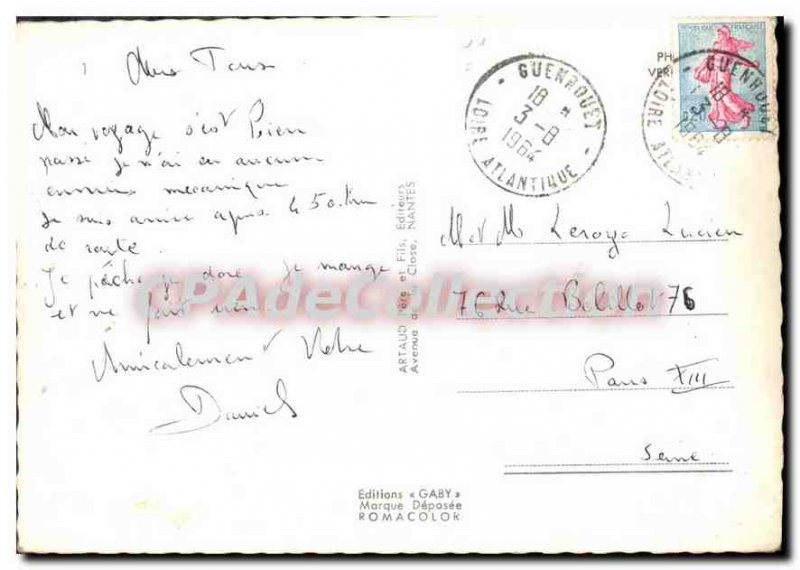 Mon voyage s'est bien
passé je n'ai eu aucun
ennuis mecanique
je suis arrivé apres 450 km
de route.
Je pêche je dore je mange
et ne fait rien
Amicalement Votre
Daniel
GUENROUET
18 *
3-8
1964
LOIRE ATLANTIQUE
REPUBLIQUE FRANÇAISE
PH
VERI
GUENROUET
18
3-8
1964
LOIRE ATLAN
ARTAUD Père et Fils, Editeurs
Avenue de la Close, NANTES
M et Mme Leroye Lucien
76 Rue 76
Paris XIII
Seine
CPAdeCollection
Editions « GABY »
Marque Déposée
ROMACOLOR